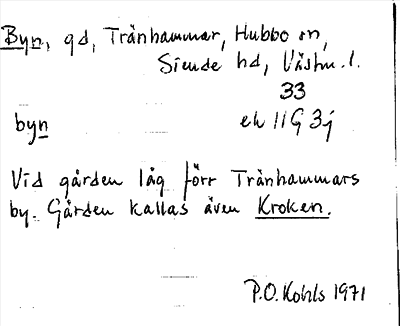 Byn, gd, Trånhammar, Hubbo sn,
Siende hd, Västm. l.
33
byn ek 11G 3j
Vid gården låg förr Trånhammars
by. Gården kallas även Kroken.
P.O. Kohls 1971